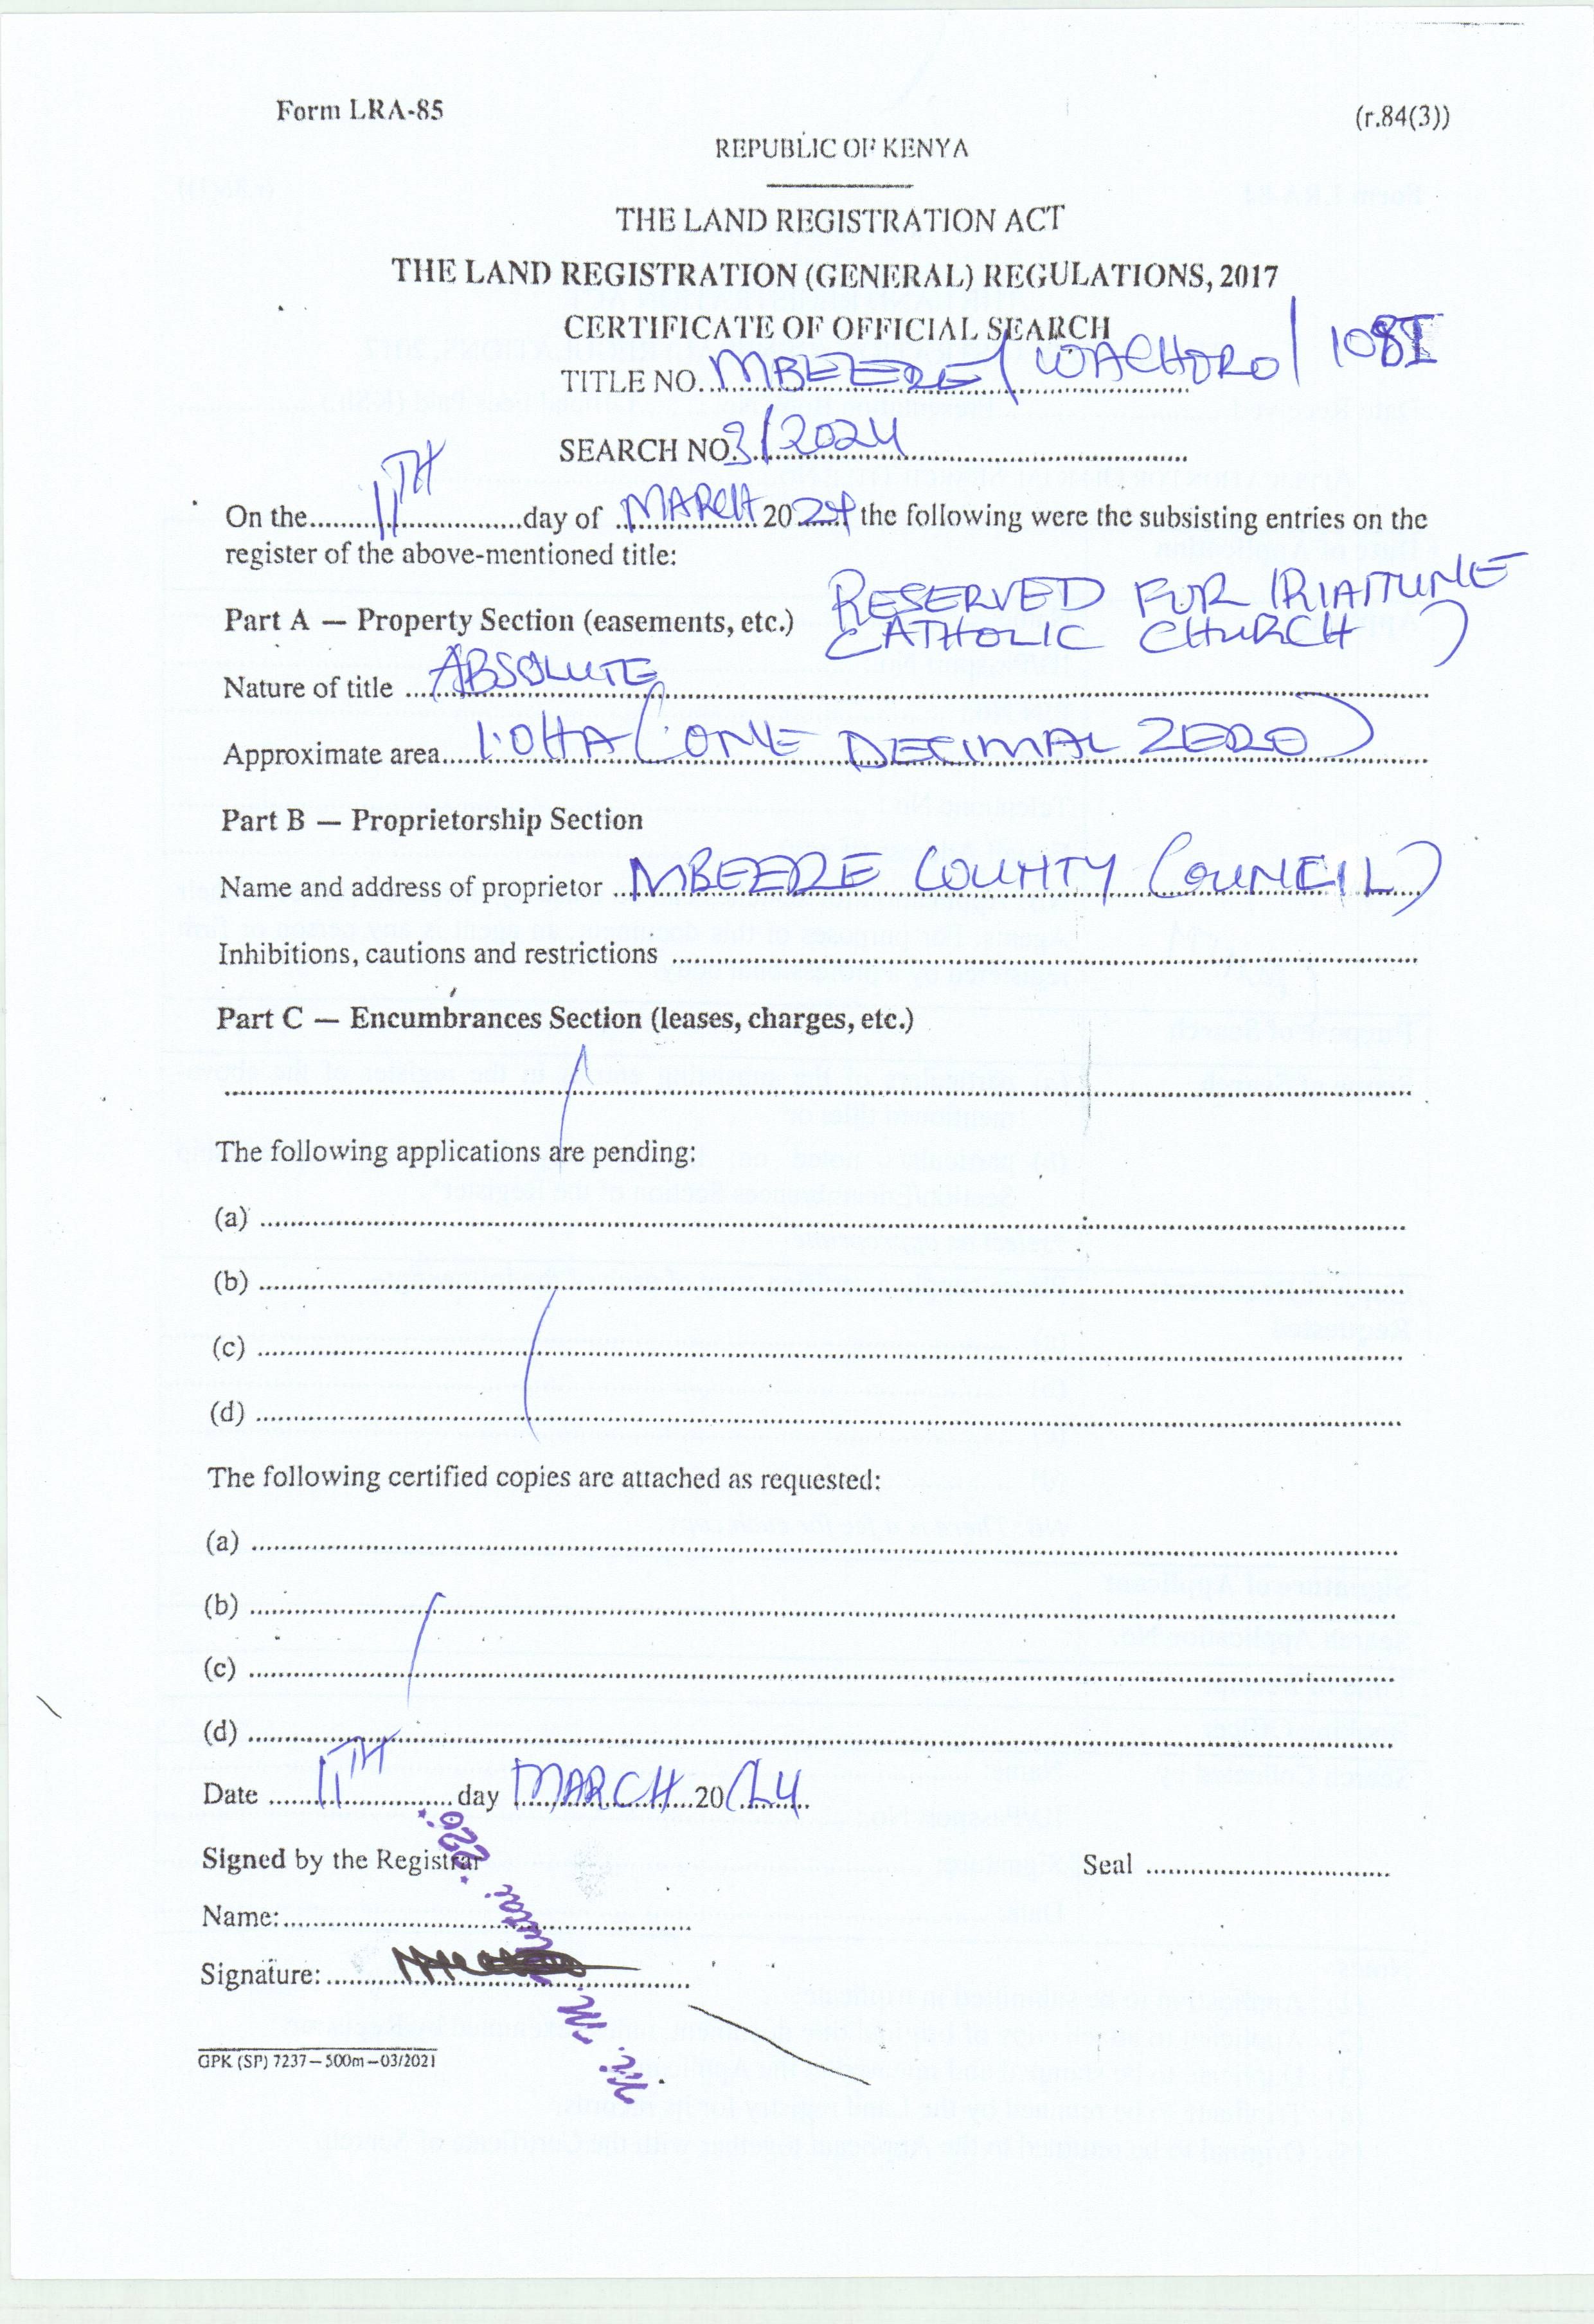 Form LRA-85 (r.84(3))
REPUBLIC OF KENYA
THE LAND REGISTRATION ACT
THE LAND REGISTRATION (GENERAL) REGULATIONS, 2017
CERTIFICATE OF OFFICIAL SEARCH
TITLE NO. MBEERE/ WACHORO/ 1081
SEARCH NO. 3/2024
On the 11TH day of MARCH 2024 the following were the subsisting entries on the
register of the above-mentioned title:
Part A — Property Section (easements, etc.) RESERVED FOR
CATHOLIC CHURCH)
Nature of title ABSOLUTE
Approximate area 1.0HA (ONE DECIMAL ZERO)
Part B — Proprietorship Section
Name and address of proprietor MBEERE COUNTY COUNCIL)
Inhibitions, cautions and restrictions
Part C — Encumbrances Section (leases, charges, etc.)
The following applications are pending:
(a)
(b)
(c)
(d)
The following certified copies are attached as requested:
(a)
(b)
(c)
(d)
Date 11TH day MARCH 20/24
Signed by the Registrar Seal
Name:
Signature:
*220*
GPK (SP) 7237—500m—03/2021